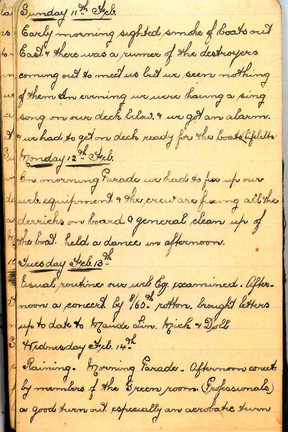 Sunday 11th Feb.
Early morning sighted smoke of boats out
East & there was a rumer of the destroyers
coming out to meet us but we seen nothing
of them. In evening we were having a sing
song on our deck below & we got an alarm.
& we had to get on deck ready for the boats lifebelts
Monday 12th Feb.
On morning Parade we had to fix up our
web. equipment & the crew are fixing all the
derricks on board & general clean up of
the boat. held a dance in afternoon.
Tuesday Feb. 13th
Usual routine our web Eq. examined. After-
noon a concert by 8/60th rotton. brought letters
up to date to Maude Lin. Mick & Doll.
Wednesday Feb. 14th
Raining. Morning Parade. Afternoon concert
by members of the Green room (Professionals)
a good turn out especially an aerobatic turn